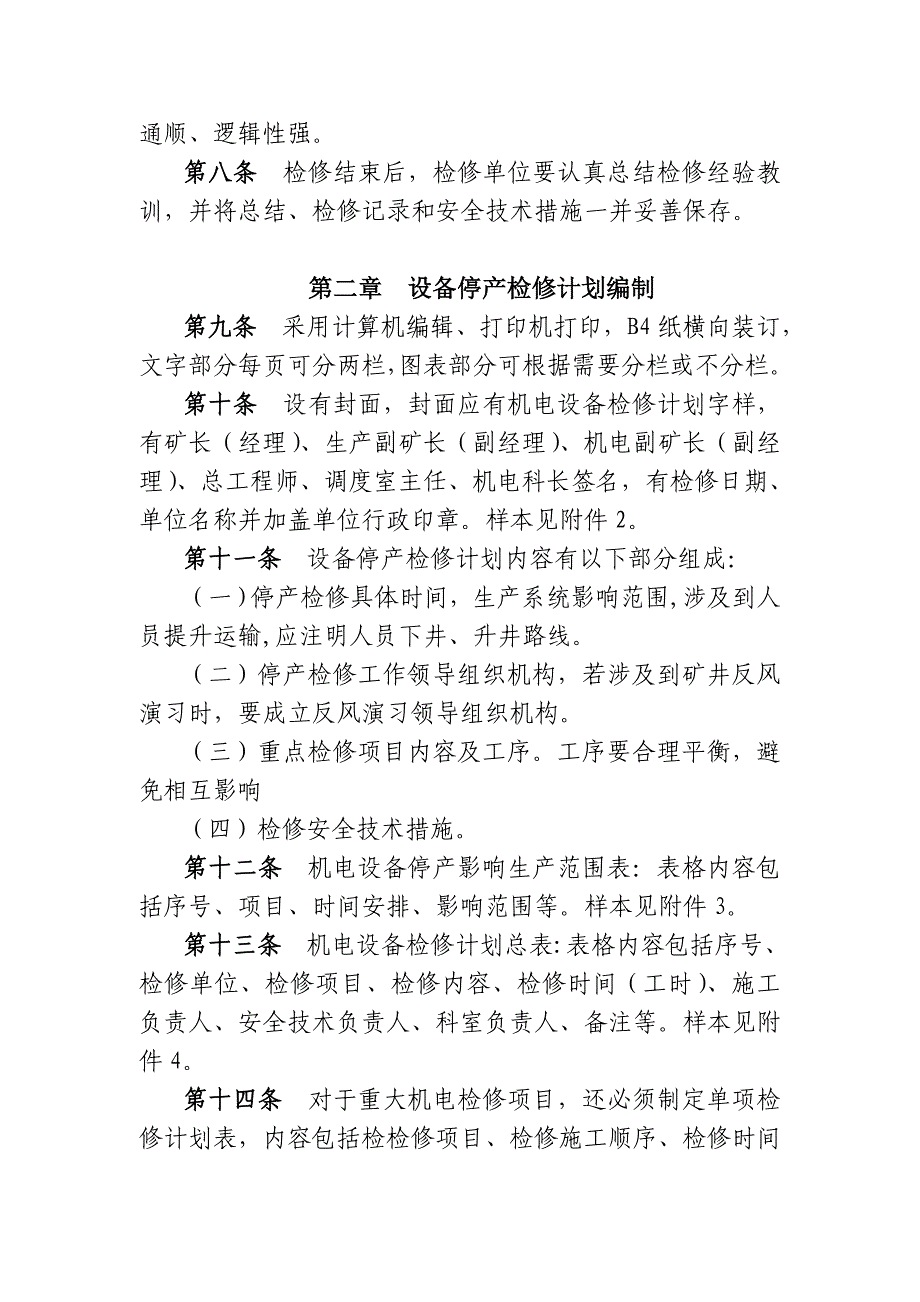 通顺、逻辑性强。
第八条　检修结束后，检修单位要认真总结检修经验教
训，并将总结、检修记录和安全技术措施一并妥善保存。
第二章　设备停产检修计划编制
第九条　采用计算机编辑、打印机打印，B4 纸横向装订，
文字部分每页可分两栏,图表部分可根据需要分栏或不分栏。
第十条　设有封面，封面应有机电设备检修计划字样，
有矿长（经理）、生产副矿长（副经理）、机电副矿长（副经
理）、总工程师、调度室主任、机电科长签名，有检修日期、
单位名称并加盖单位行政印章。样本见附件 2。
第十一条　设备停产检修计划内容有以下部分组成：
（一）停产检修具体时间，生产系统影响范围,涉及到人
员提升运输,应注明人员下井、升井路线。
（二）停产检修工作领导组织机构，若涉及到矿井反风
演习时，要成立反风演习领导组织机构。
（三）重点检修项目内容及工序。工序要合理平衡，避
免相互影响
（四）检修安全技术措施。
第十二条　机电设备停产影响生产范围表：表格内容包
括序号、项目、时间安排、影响范围等。样本见附件 3。
第十三条　机电设备检修计划总表：表格内容包括序号、
检修单位、检修项目、检修内容、检修时间（工时）、施工
负责人、安全技术负责人、科室负责人、备注等。样本见附
件 4。
第十四条　对于重大机电检修项目，还必须制定单项检
修计划表，内容包括检检修项目、检修施工顺序、检修时间